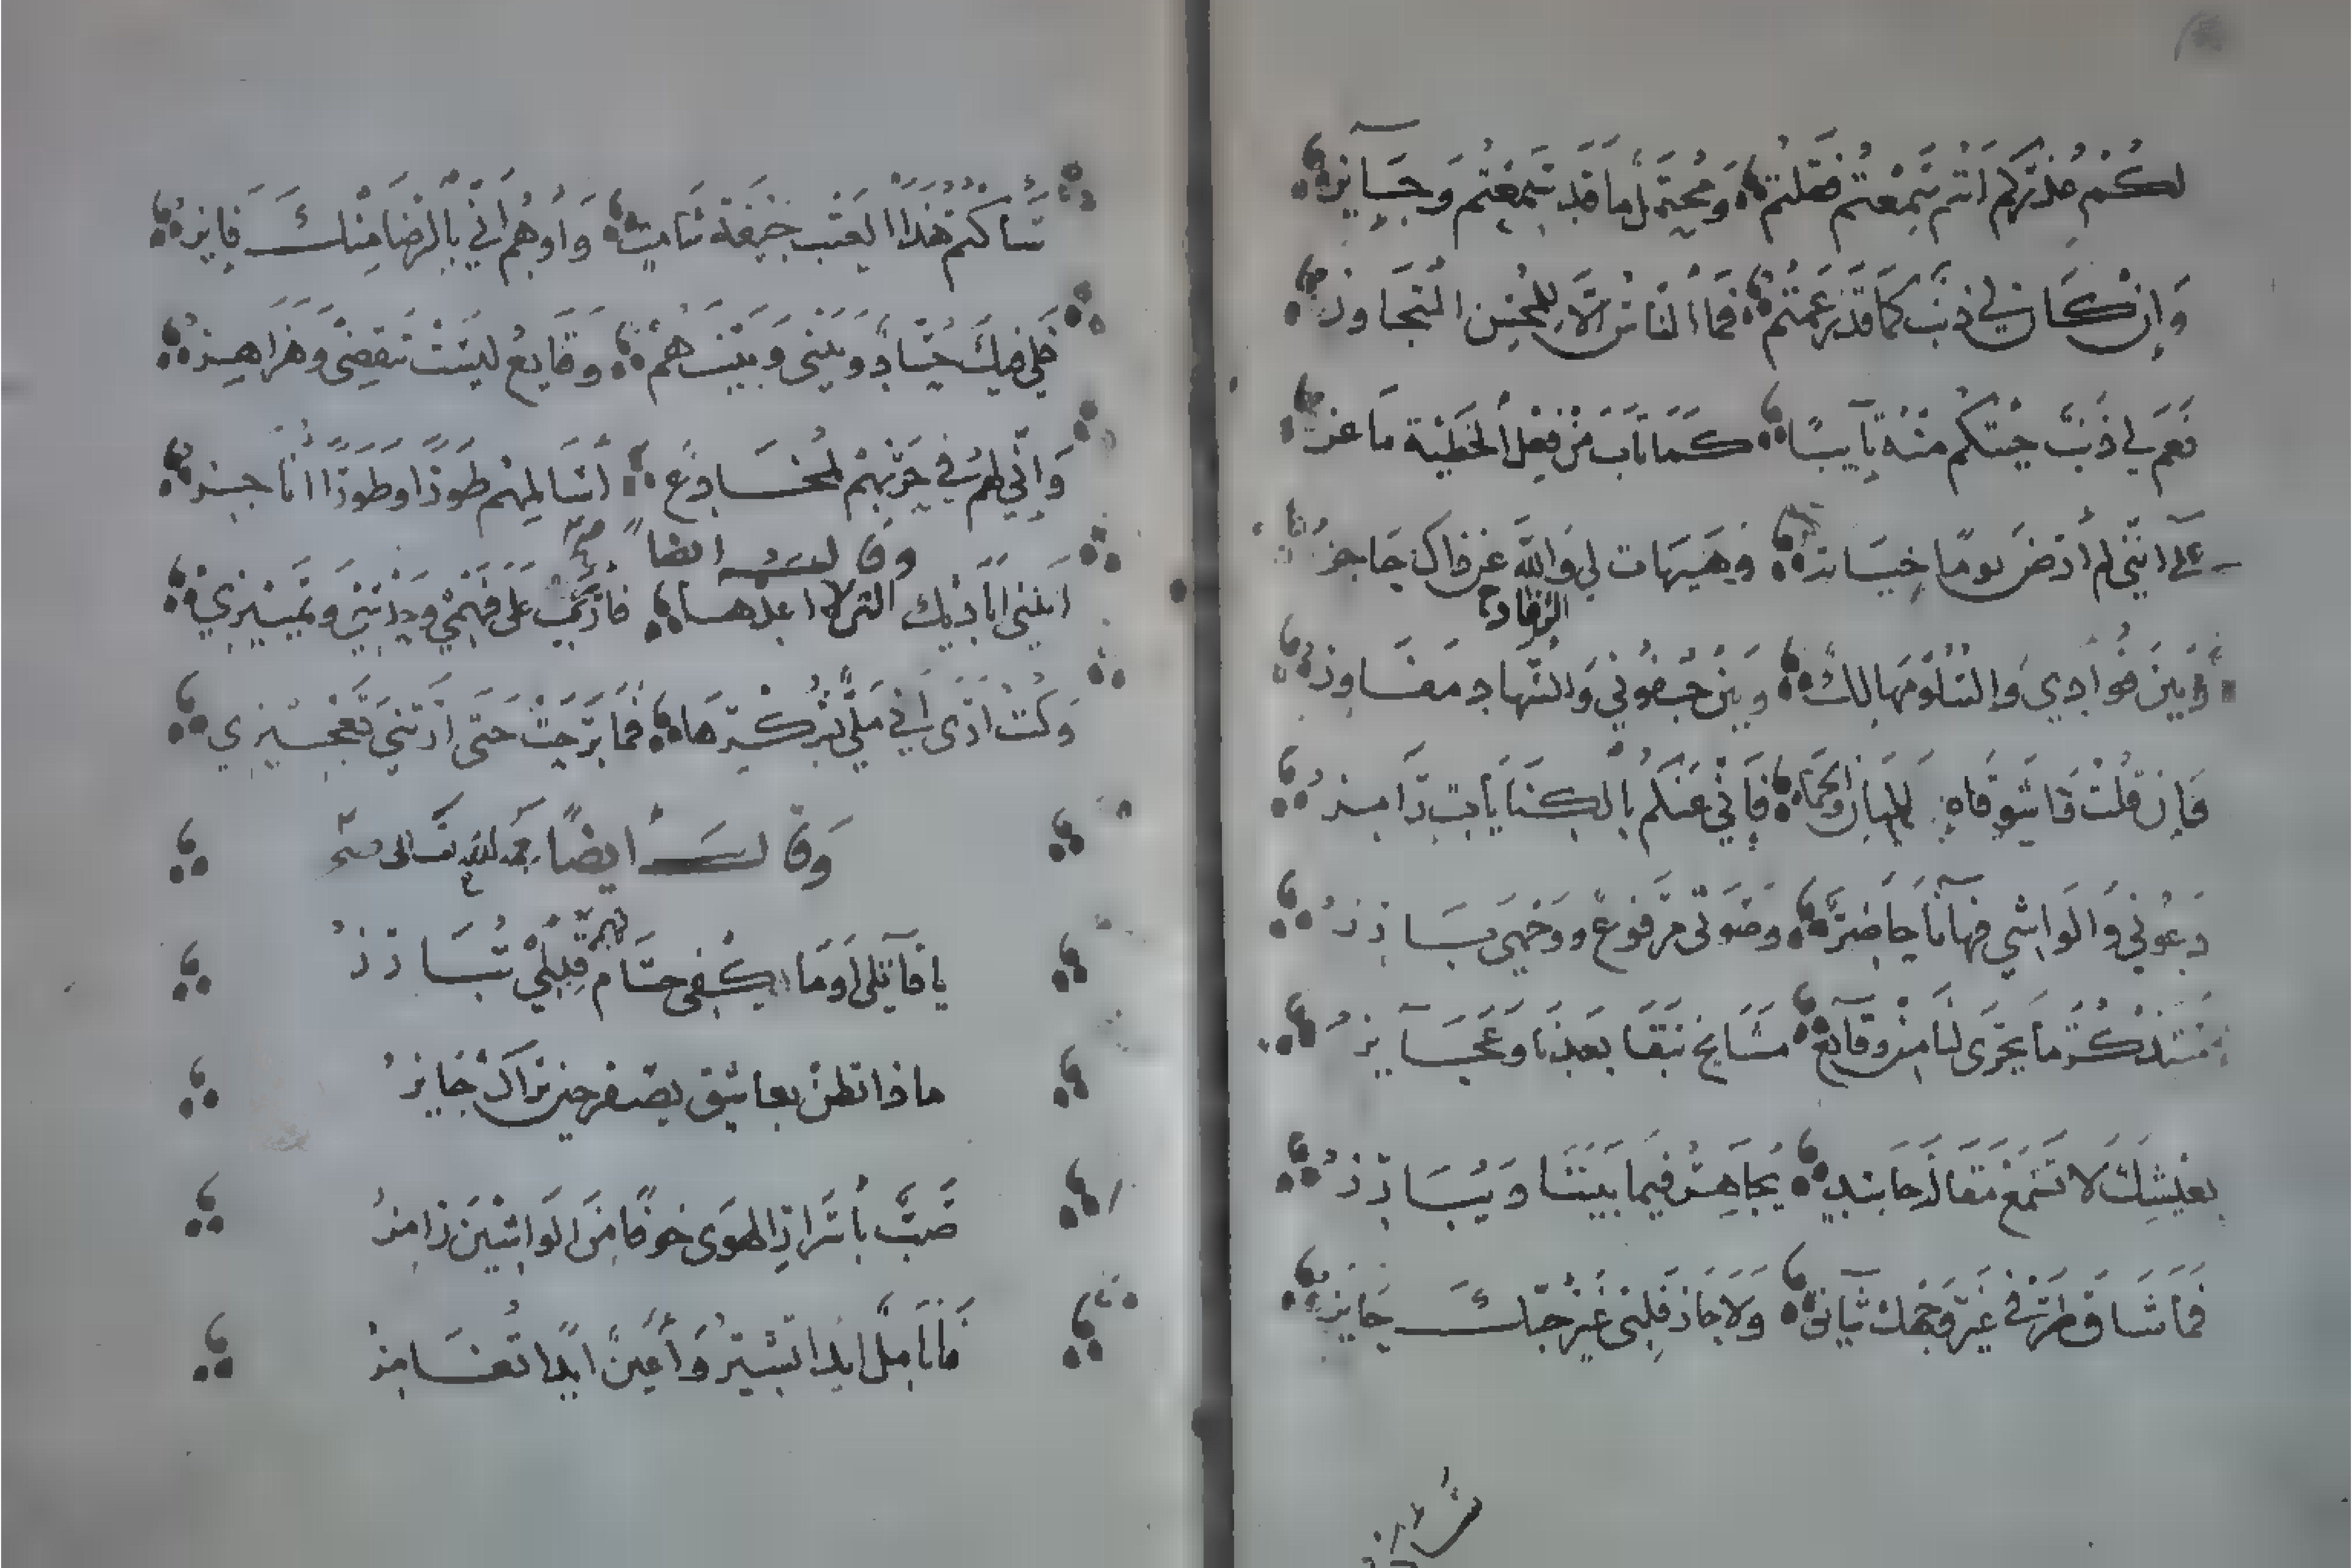 لكم عذركم انتم سمعتم فقلتم ومحتمل ما قد سمعتم وجايز
وإن كان لي ذنب كما قد زعمتم فما الناس الا المحسن المتجاوز
نعم لي ذنب جيتكم منه تايبا كما تاب من فعل الخطية ماعز
على انني لم ارض يوما خيانة وهيهات لي والله عن ذاك حاجز
وبين فوادي والسلو مهالك وبين جفوني والرقاد مفاوز
فإن قلت واشوقاه للبان والحما فإني عنكم بالكنايات رامز
دعوني والواشي فها أنا حاضر وصوتي مرفوع ووجهي بارز
ستذكر ما يجري لنا من وقايع مشايخ تبقا بعدنا وعجايز
بعيشك لا تسمع مقالة حاسد يجاهر فيما بيننا ويبارز
فما شاق طرفي غير وجهك شائق ولا حاز قلبي غير حبك حايز
سأكتم هذا العتب خيفة شامت وأوهم اني بالرضا منك فايز
فلي فيك حساد وبيني وبينهم وقايع ليست تنقضي وهزاهز
وإني لهم في حربهم لمخادع اسالمهم طورا وطورا اناجز
وقال ايضا
اتتني اياديك التي لا اعدها
وكنت ارى اني ملي بشكرها فما برحت حتى ارتني تعجيزي
وقال ايضا رحمه الله تعالى
يا قاتلي اوما يكفي حتام قتلي تبارز
ماذا تظن بعاشق يصفر حين يراك جايز
صب بأسرار الهوى خوفا من الواشين رامز
فأنامل ابدا تشير وأعين ابدا تغامز